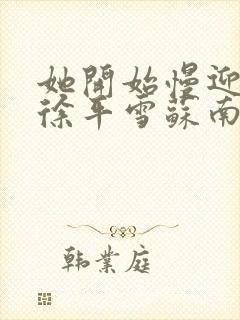 她開始慢迎
徐平雪蘇南
韩業庭